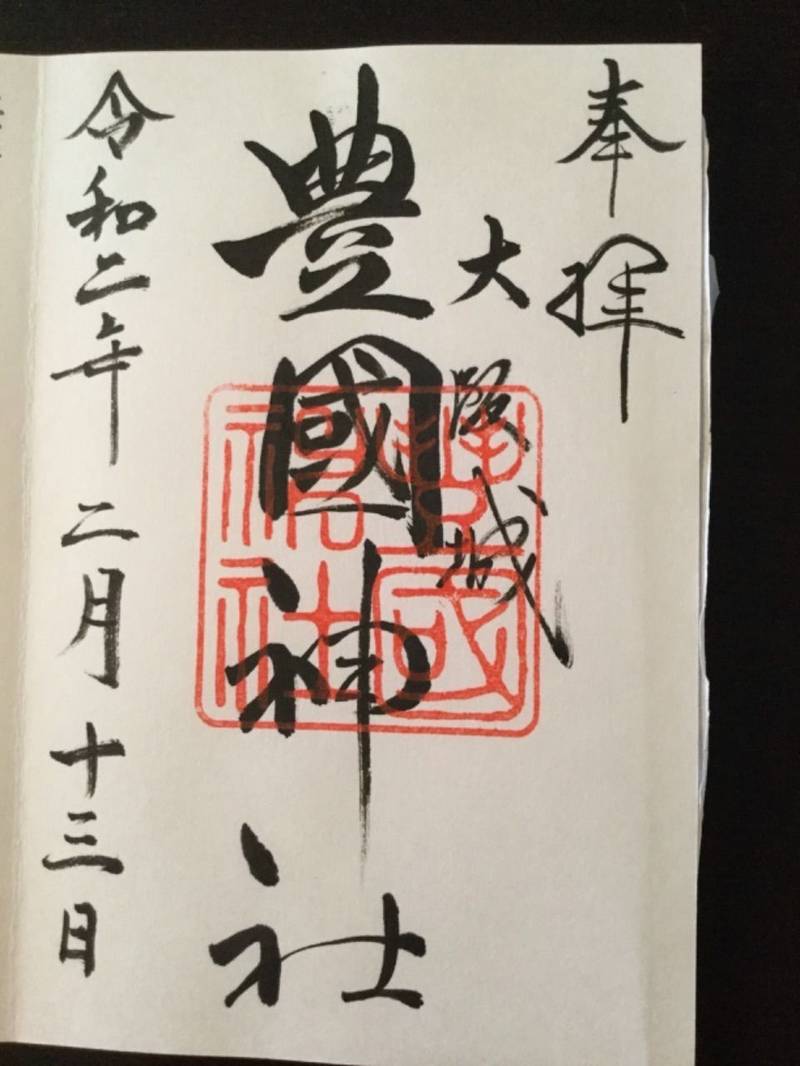 奉拝
大阪城
豊國神社
令和二年二月十三日